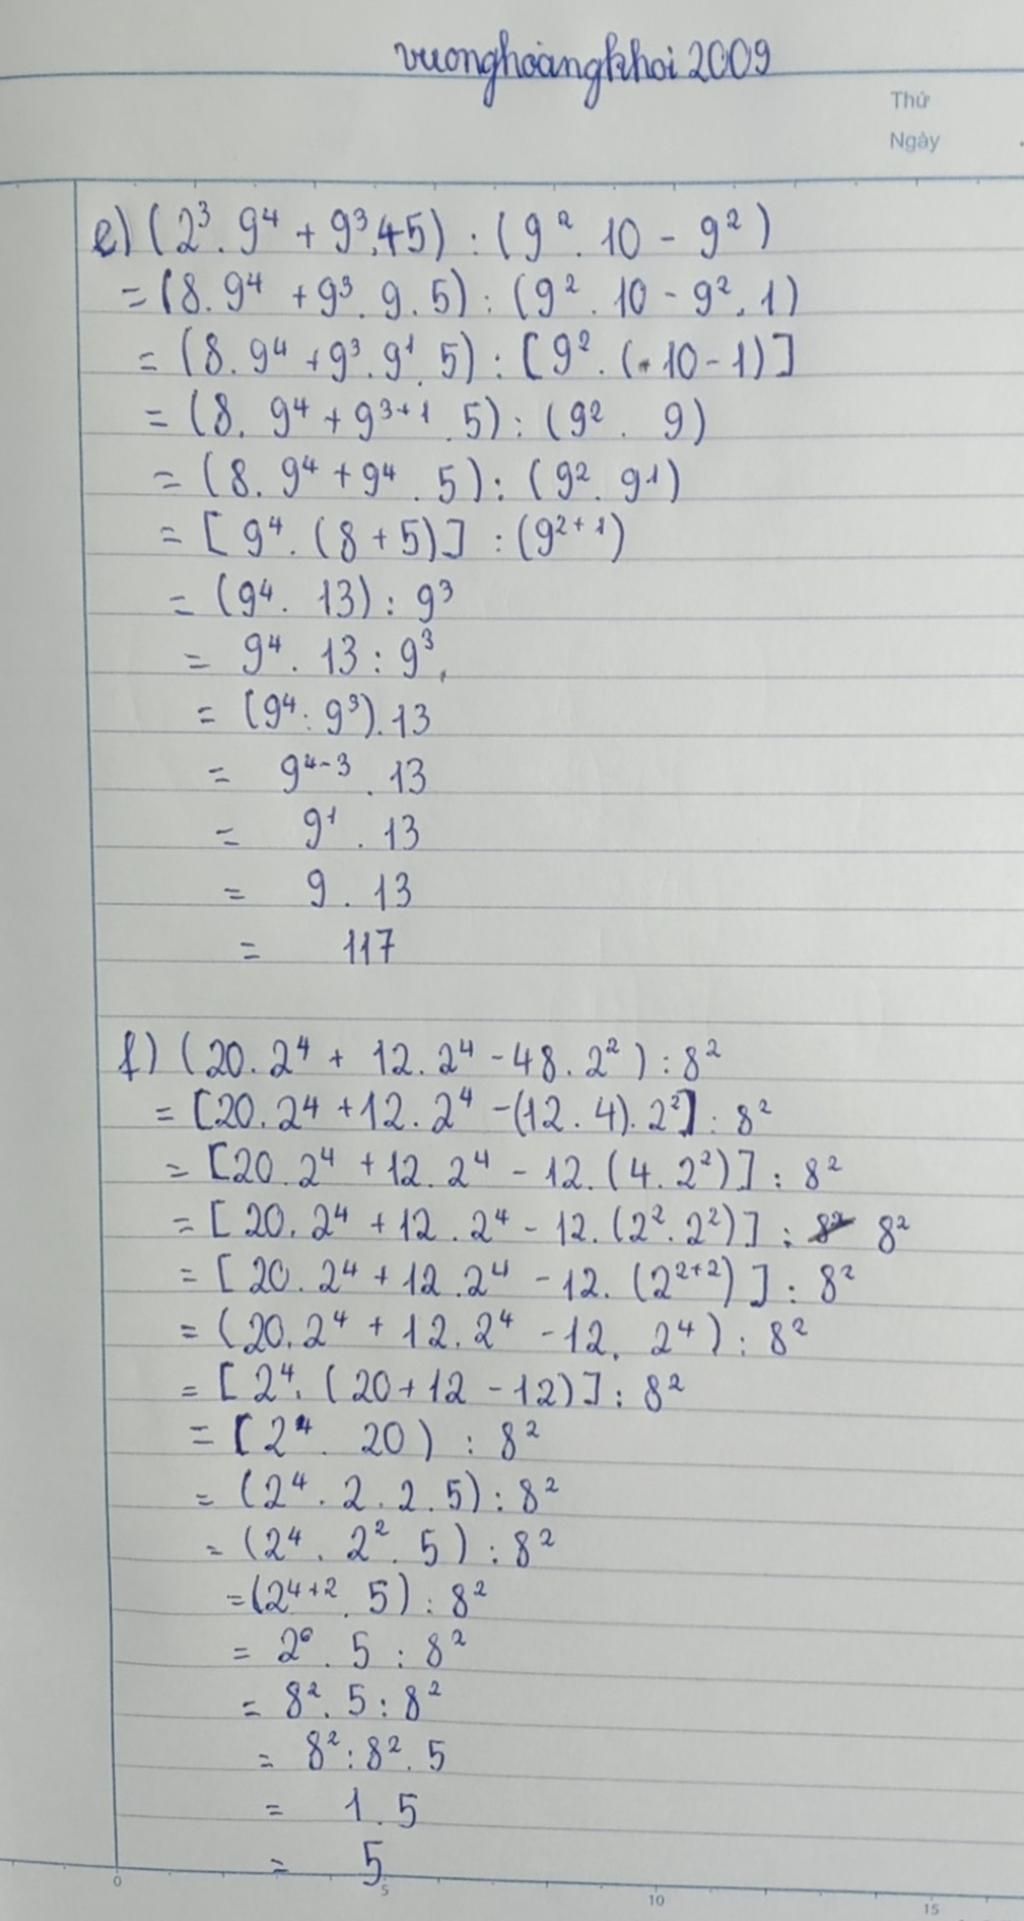 vuonghoàngkhoi 2009
Thứ
Ngày
e) (2³. 9⁴ + 9³.45) : (9². 10 - 9²)
= (8. 9⁴ + 9³. 9. 5) : (9². 10 - 9². 1)
= (8. 9⁴ + 9³. 9¹. 5) : [9². (10 - 1)]
= (8. 9⁴ + 9³⁺¹. 5) : (9². 9)
= (8. 9⁴ + 9⁴. 5) : (9². 9¹)
= [9⁴. (8 + 5)] : (9²⁺¹)
= (9⁴. 13) : 9³
= 9⁴. 13 : 9³
= (9⁴ : 9³). 13
= 9⁴⁻³. 13
= 9¹. 13
= 9. 13
= 117
f) (20. 2⁴ + 12. 2⁴ - 48. 2²) : 8²
= [20. 2⁴ + 12. 2⁴ - (12. 4). 2²] : 8²
= [20. 2⁴ + 12. 2⁴ - 12. (4. 2²)] : 8²
= [20. 2⁴ + 12. 2⁴ - 12. (2². 2²)] : 8²
= [20. 2⁴ + 12. 2⁴ - 12. (2²⁺²)] : 8²
= (20. 2⁴ + 12. 2⁴ - 12. 2⁴) : 8²
= [2⁴. (20 + 12 - 12)] : 8²
= [2⁴. 20) : 8²
= (2⁴. 2. 2. 5) : 8²
= (2⁴. 2². 5) : 8²
= (2⁴⁺². 5) : 8²
= 2⁶. 5 : 8²
= 8². 5 : 8²
= 8² : 8². 5
= 1. 5
= 5
0 5 10 15